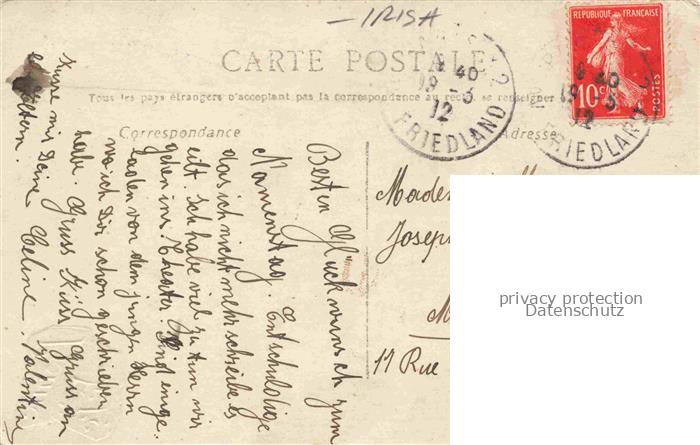 – IRISA
CARTE POSTALE
Tous les pays étrangers n'acceptent pas la correspondance au recto, se renseigner
Correspondance
Adresse
RÉPUBLIQUE FRANÇAISE
10c
POSTES
40
19 - 3
12
FRIEDLAND
40
19 3
12
FRIEDLAND
Besten Glückwunsch zum
Namenstag. Entschuldige
das ich nicht mehr schreibe es
eilt. Ich habe viel zu tun wir
gehen ins Theater. Sind einge-
laden von dem jungen Herrn
wo ich Dir schon geschrieben
habe. Gruss Küss Gruss an
Eltern. Deine Celine. Valentine
Küsse mir Deine
Josep
M
11 Rue
privacy protection
Datenschutz